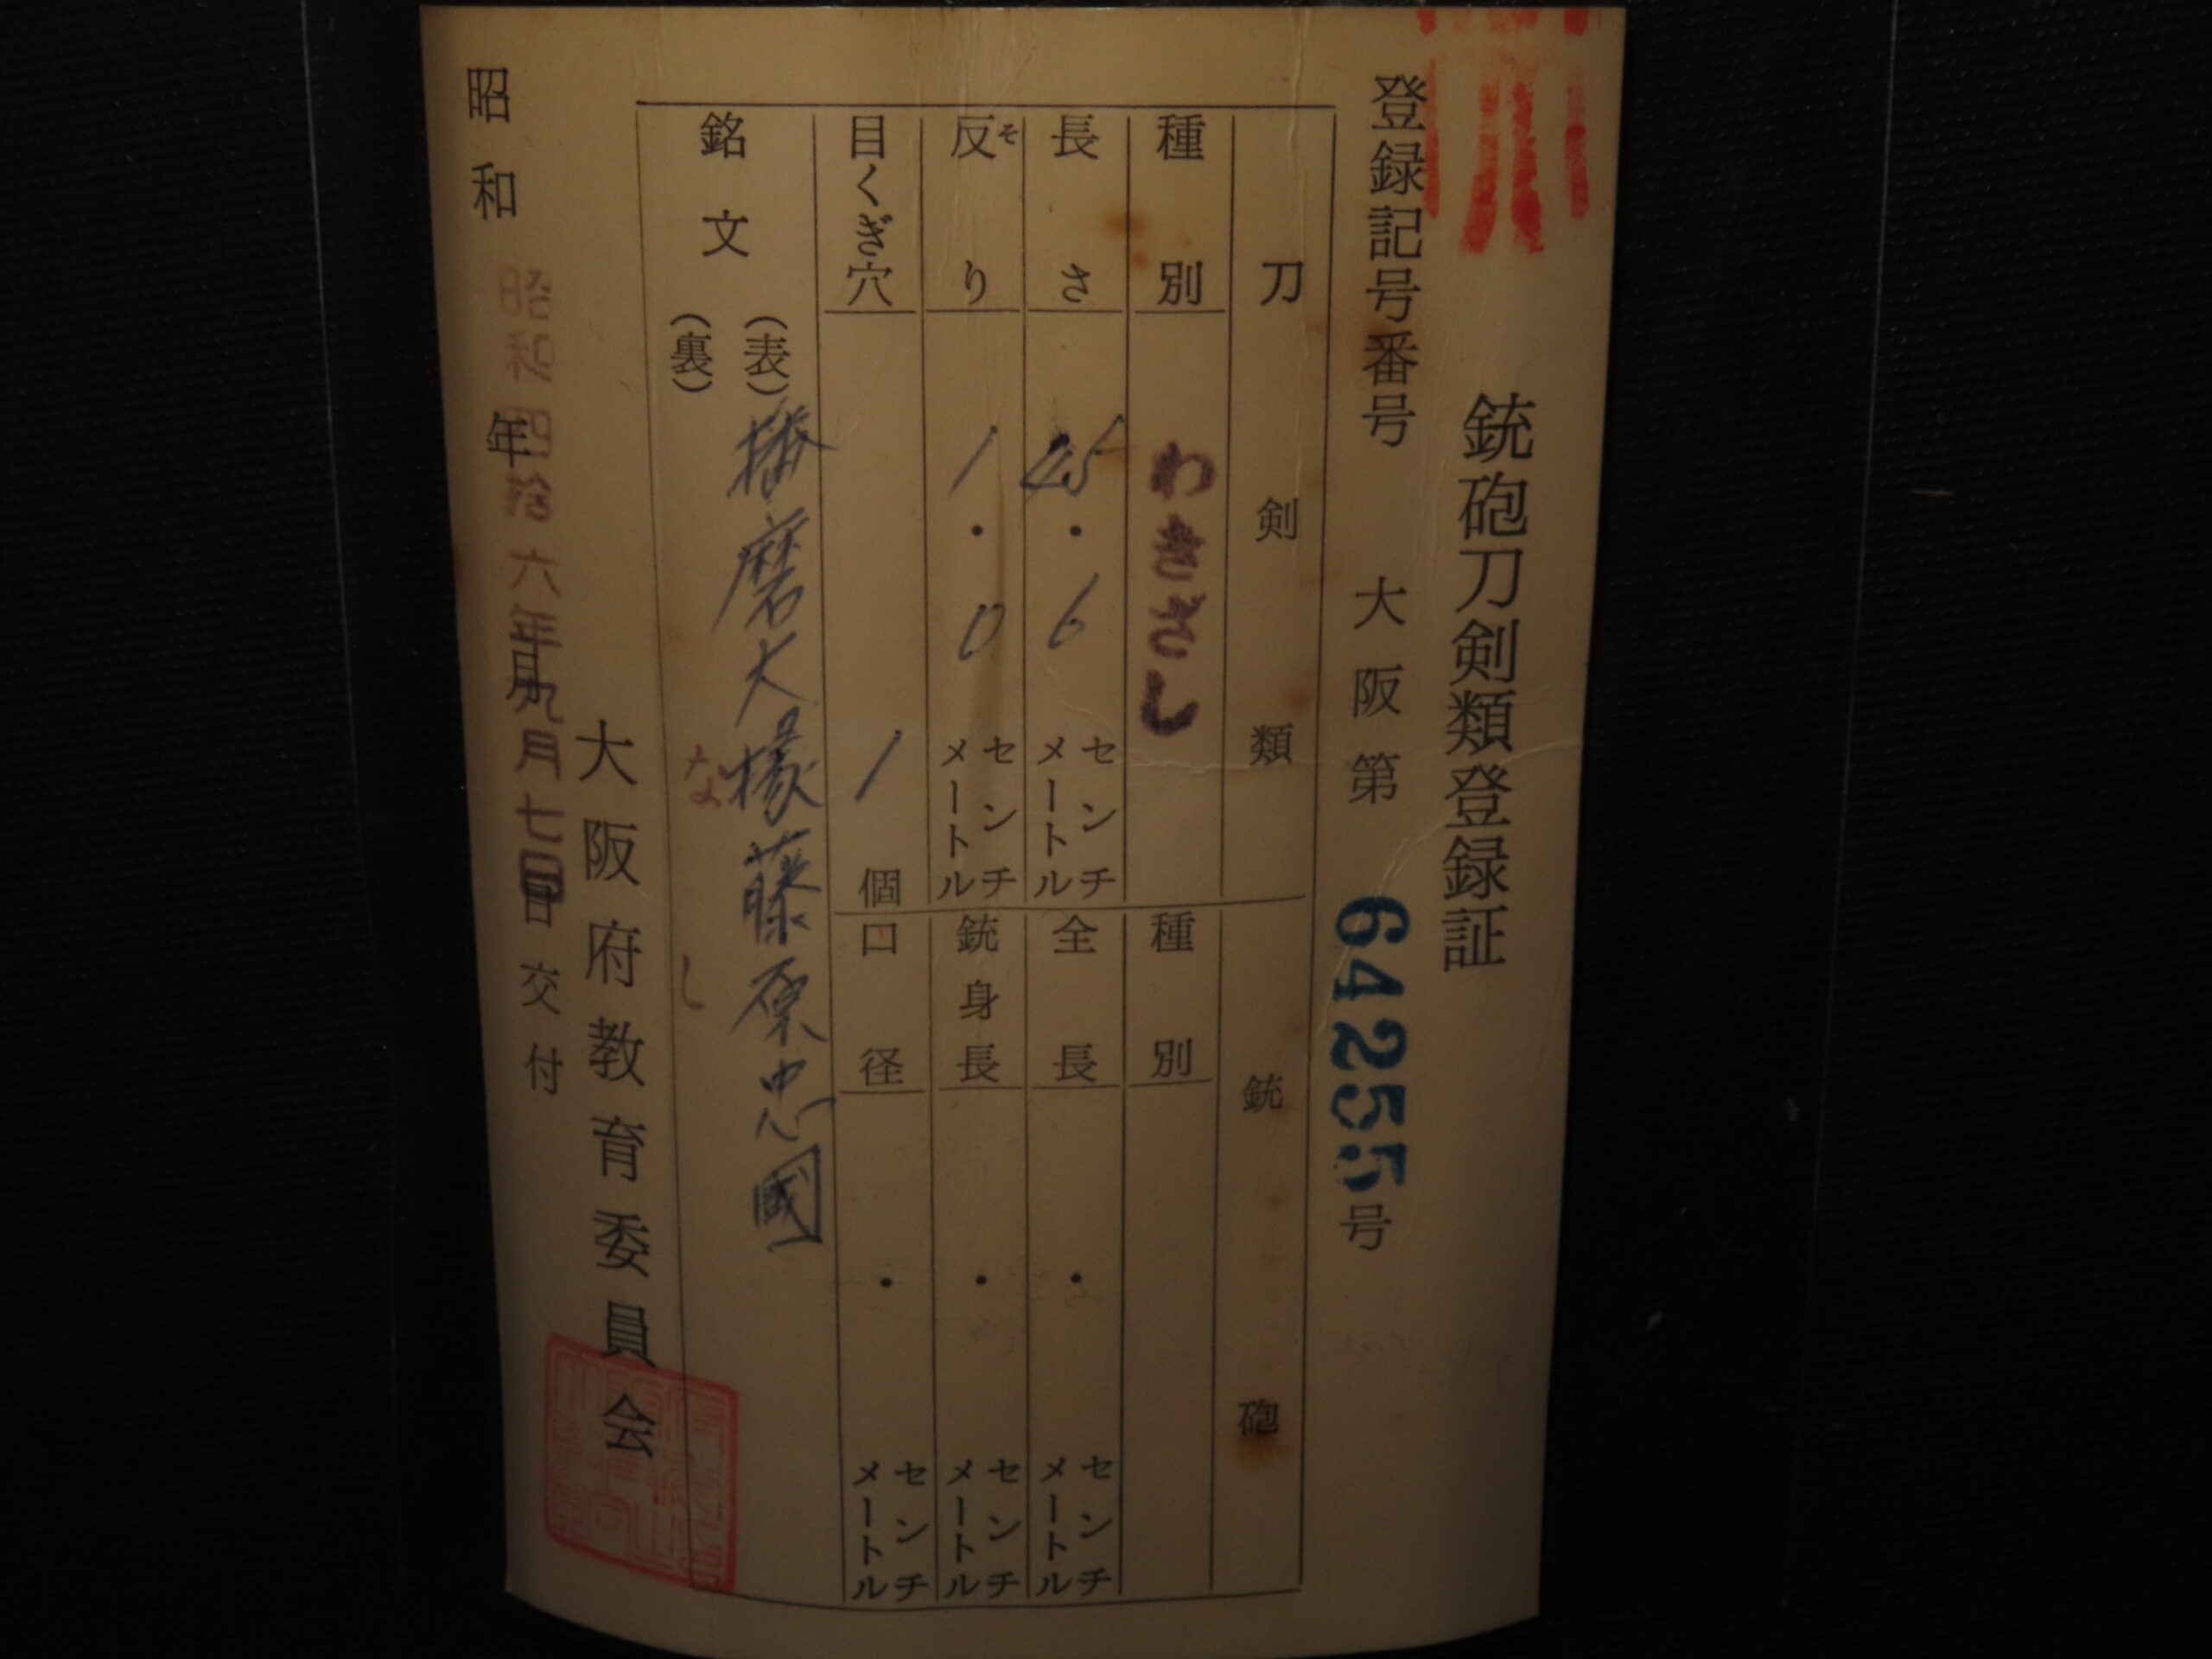 銃砲刀剣類登録証
登録記号番号 大阪第 64255号
刀剣類
種別 わきざし
長さ 45.6 センチメートル
反り 1.0 センチメートル
目くぎ穴 1 個
銃砲
種別
全長 ・ センチメートル
銃身長 ・ センチメートル
口径 ・ センチメートル
銘文
(表) 播磨大掾藤原忠國
(裏) なし
大阪府教育委員会
昭和 年 月 日 交付
昭和四拾六年九月七日